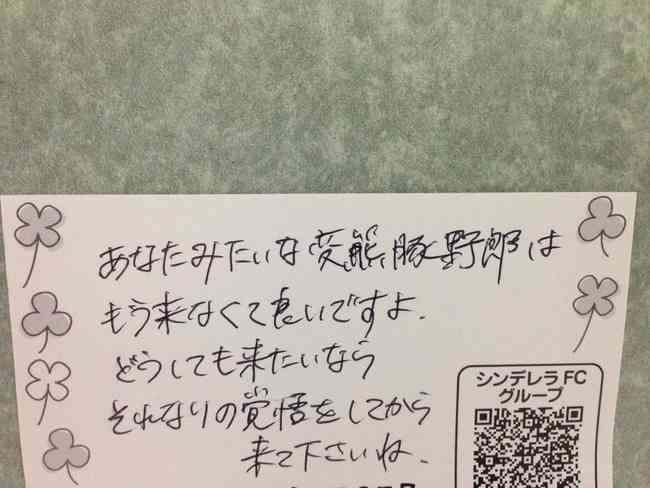 あなたみたいな変熊豚野郎は
もう来なくて良いですよ.
どうしても来たいなら
それなりの覚悟をしてから
来て下さいね.
シンデレラFC
グループ